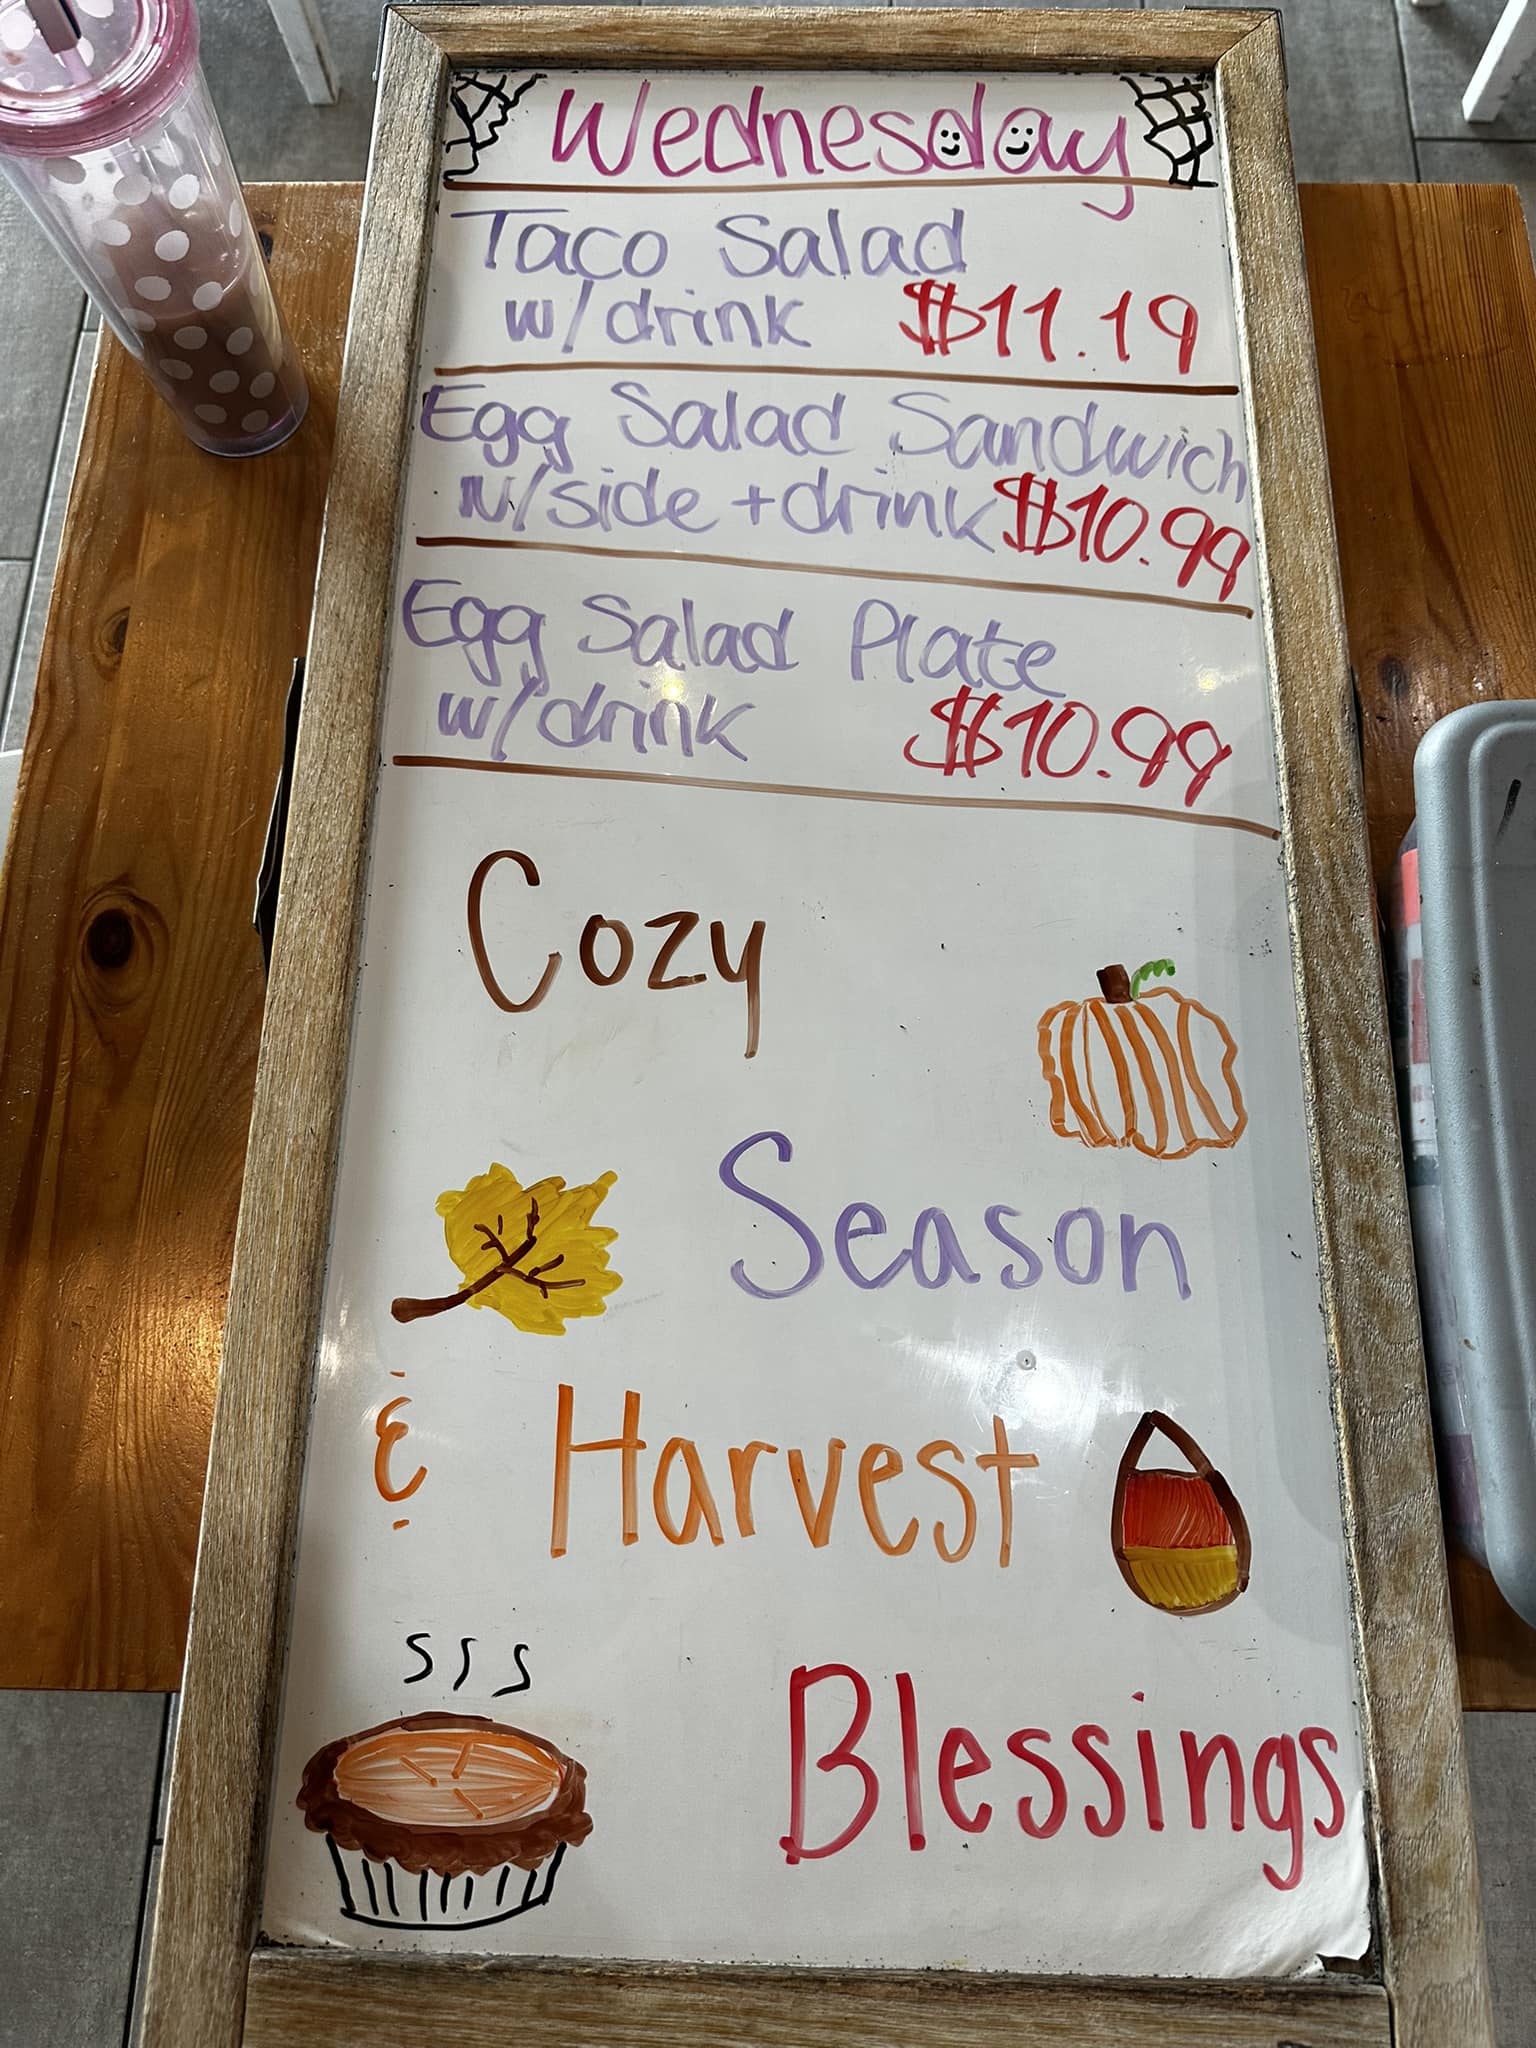 Wednesday
Taco Salad
w/drink $11.19
Egg Salad Sandwich
w/side + drink $10.99
Egg Salad Plate
w/drink $10.99
Cozy
Season
& Harvest
Blessings